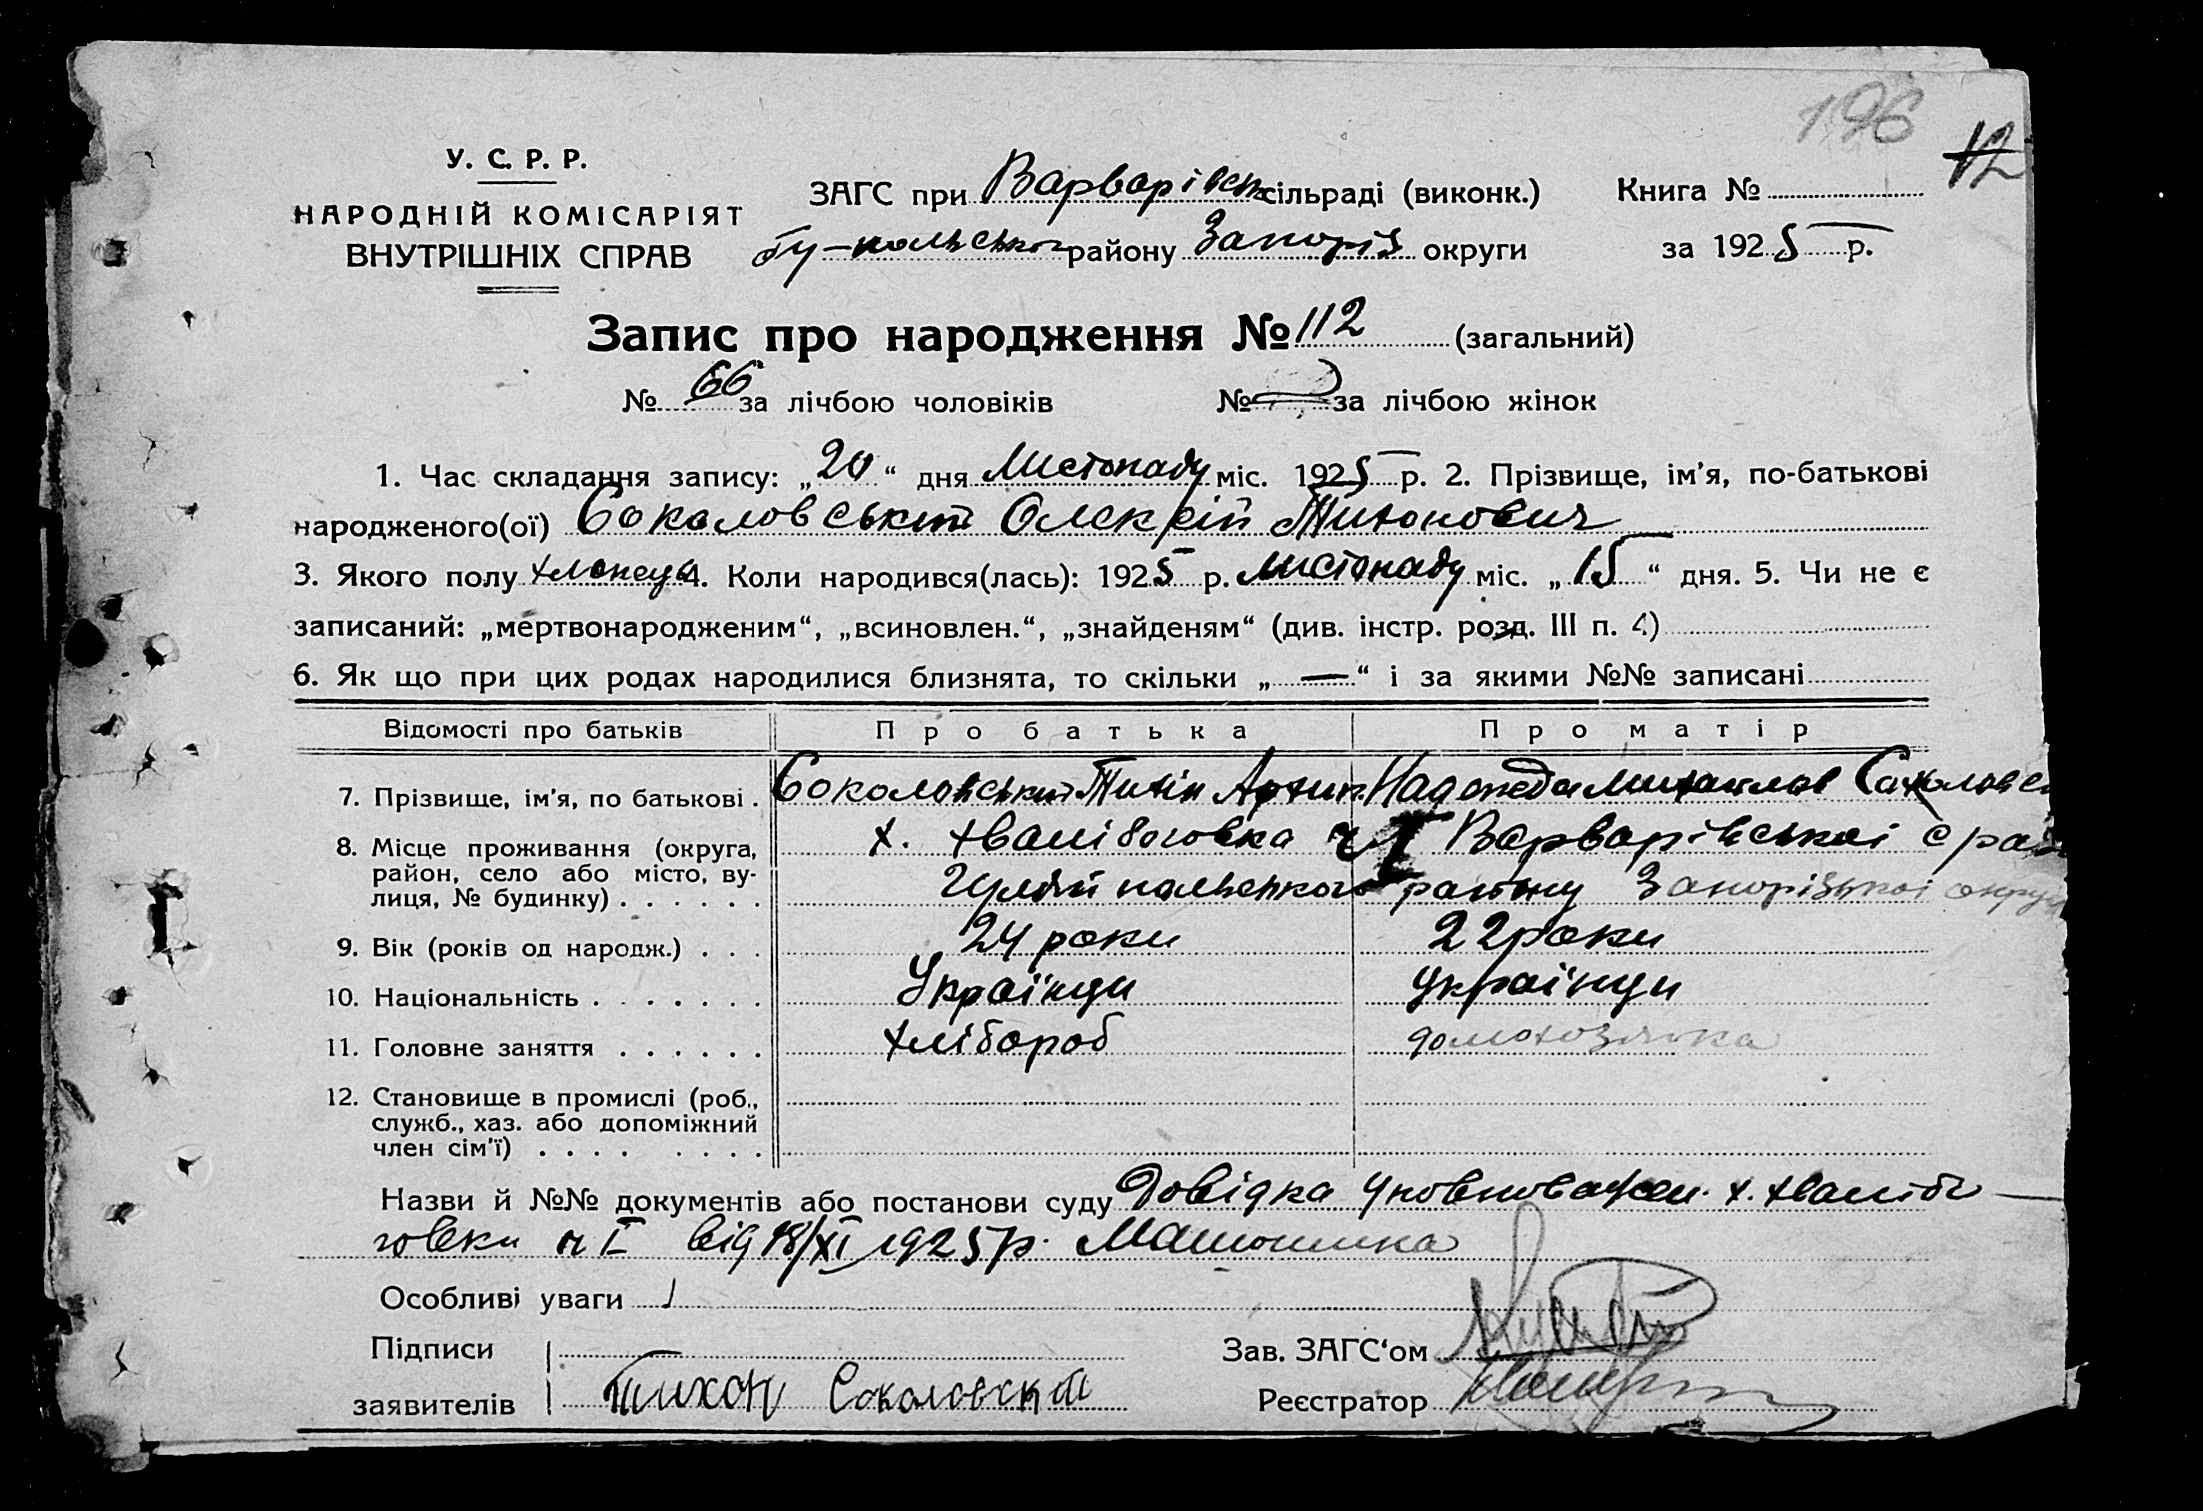 196
12
У. С. Р. Р.
НАРОДНІЙ КОМІСАРІЯТ
ВНУТРІШНІХ СПРАВ
ЗАГС при Варварівськ сільраді (виконк.) Книга №
Гу-польського району Запоріз округи за 1925 р.
Запис про народження № 112 (загальний)
№ 66 за лічбою чоловіків № за лічбою жінок
1. Час складання запису: „20“ дня Листопаду міс. 1925 р. 2. Прізвище, ім’я, по-батькові
народженого(ої) Соколовський Олекрій Тихонович
3. Якого полу хлопець 4. Коли народився(лась): 1925 р. листопаду міс. „15“ дня. 5. Чи не є
записаний: „мертвонародженим“, „всиновлен.“, „знайденям“ (див. інстр. розд. III п. 4)
6. Як що при цих родах народилися близнята, то скільки „—“ і за якими №№ записані
Відомості про батьків Про батька Про матір
7. Прізвище, ім’я, по батькові . Соколовський Тихін Архип. Надежда Михайлов Соколовс
8. Місце проживання (округа, х. Хвалібоговка ч I Варварівської с ра
район, село або місто, ву- Гуляй польського району Запорізької округ
лиця, № будинку) . . . . . .
9. Вік (років од народж.) . . . 24 роки 22 роки
10. Національність . . . . . . . Українци українци
11. Головне заняття . . . . . . хлібороб домохозяйка
12. Становище в промислі (роб.,
служб., хаз. або допоміжний
член сім’ї) . . . . . . . .
Назви й №№ документів або постанови суду Довідка уповноважен. х. Хвалібо—
говки ч I від 18/XI 1925 р.
Особливі уваги
Підписи Зав. ЗАГС‘ом
заявителів Тихон Соколовский Реєстратор